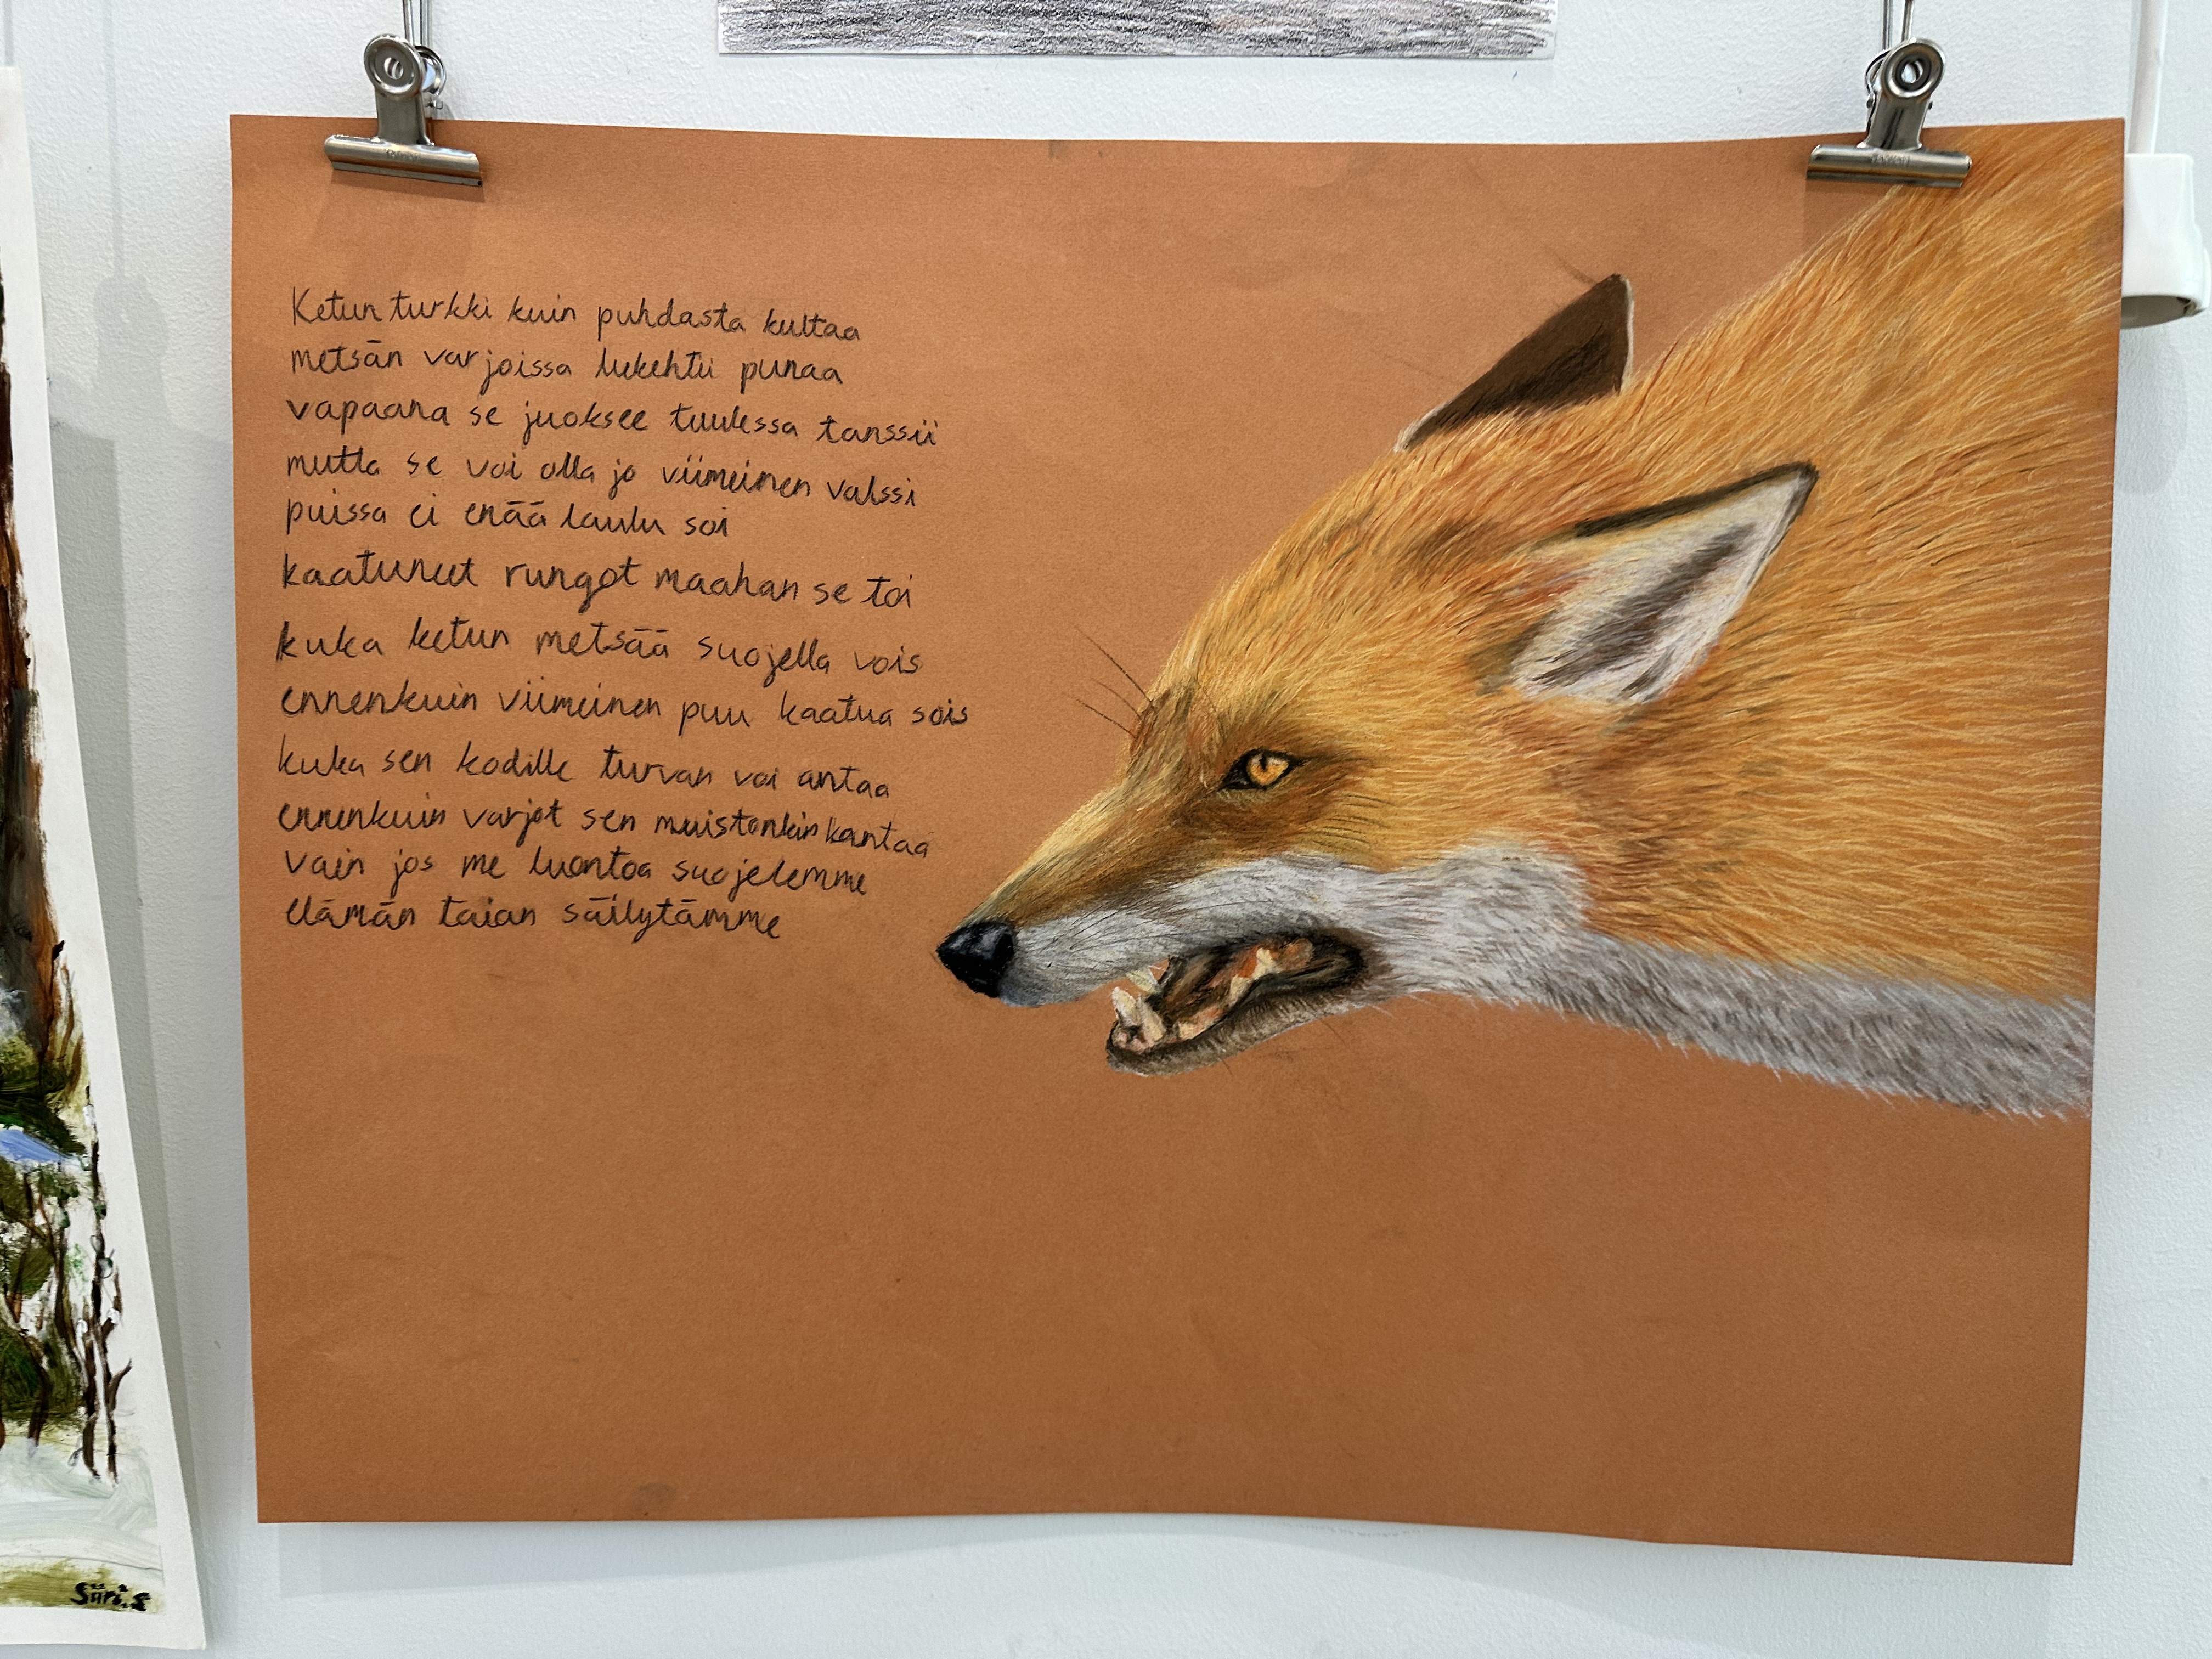 Ketun turkki kuin puhdasta kultaa
metsän varjoissa liekehtii punaa
vapaana se juoksee tuulessa tanssii
mutta se voi olla jo viimeinen valssi
puissa ei enää laulu soi
kaatuneet rungot maahan se toi
kuka ketun metsää suojella vois
ennenkuin viimeinen puu kaatua sois
kuka sen kodille turvan voi antaa
ennenkuin varjot sen muistonkin kantaa
vain jos me luontoa suojelemme
elämän taian säilytämme
Siiri.S